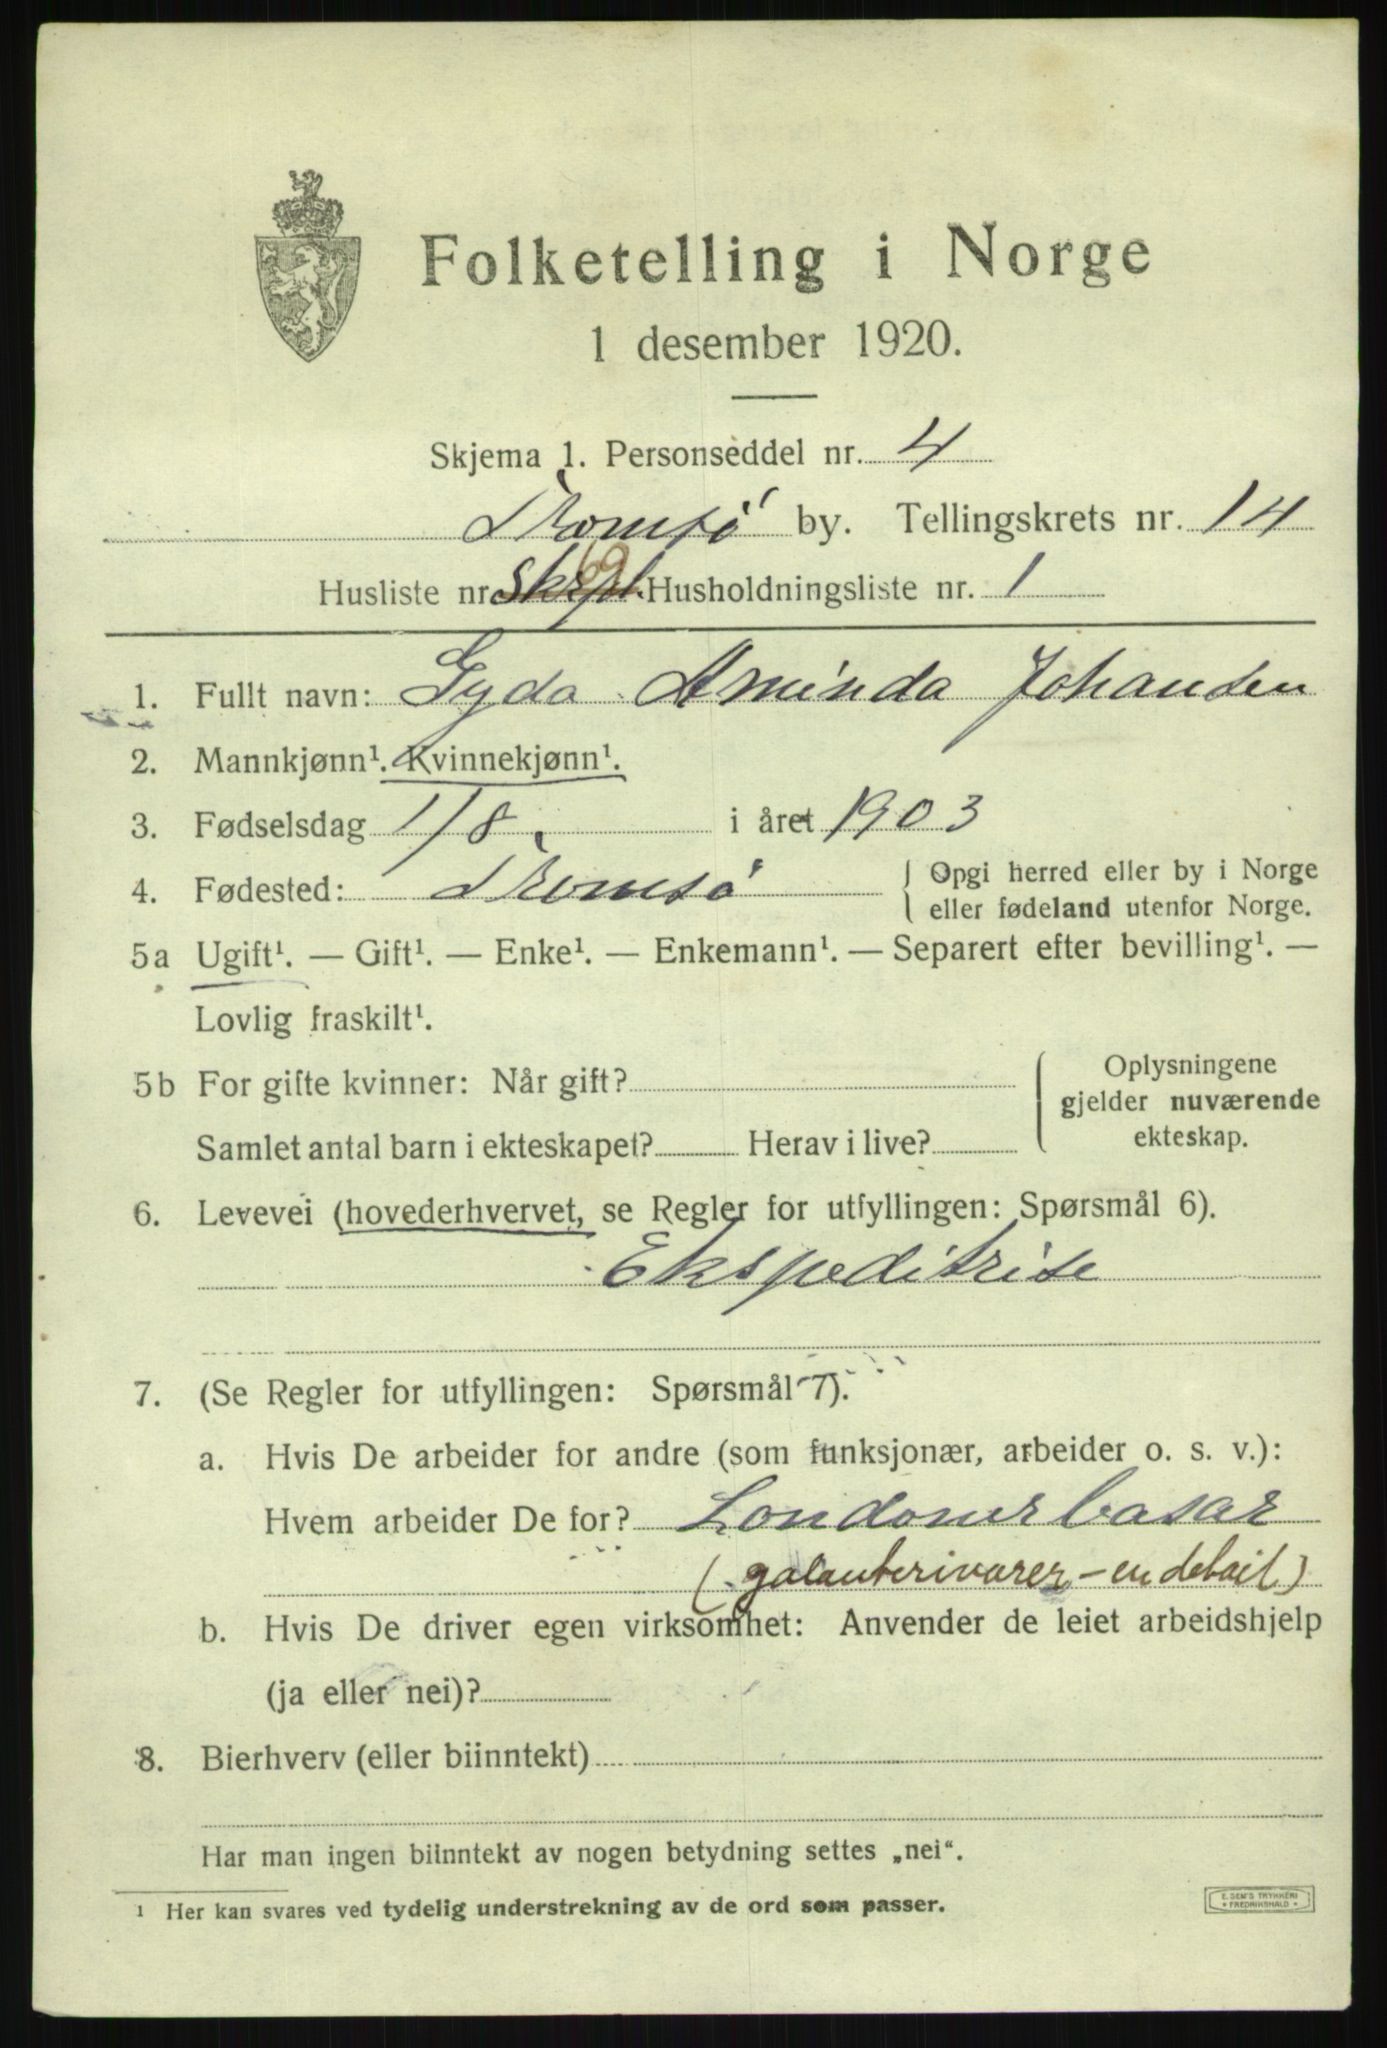 Folketelling i Norge
1 desember 1920.
Skjema 1. Personseddel nr. 4
Tromsø by. Tellingskrets nr. 14
Husliste nr. 69 Husholdningsliste nr. 1
1. Fullt navn: Gyda Aminda Johansen
2. Mannkjønn¹. Kvinnekjønn¹.
3. Fødselsdag 1/8. i året 1903
4. Fødested: Tromsø { Opgi herred eller by i Norge
eller fødeland utenfor Norge.
5a Ugift¹. — Gift¹. — Enke¹. — Enkemann¹. — Separert efter bevilling¹. —
Lovlig fraskilt¹.
5b For gifte kvinner: Når gift?
Samlet antal barn i ekteskapet? Herav i live?
Oplysningene
gjelder nuværende
ekteskap.
6. Levevei (hovederhvervet, se Regler for utfyllingen: Spørsmål 6).
Ekspeditrise
7. (Se Regler for utfyllingen: Spørsmål 7).
a. Hvis De arbeider for andre (som funksjonær, arbeider o. s. v.):
Hvem arbeider De for? Londonerbasar
(galanterivarer - en detail)
b. Hvis De driver egen virksomhet: Anvender de leiet arbeidshjelp
(ja eller nei)?
8. Bierhverv (eller biinntekt)
Har man ingen biinntekt av nogen betydning settes „nei“.
¹ Her kan svares ved tydelig understrekning av de ord som passer.
E. SEM'S TRYKKERI
• FREDRIKSHALD •